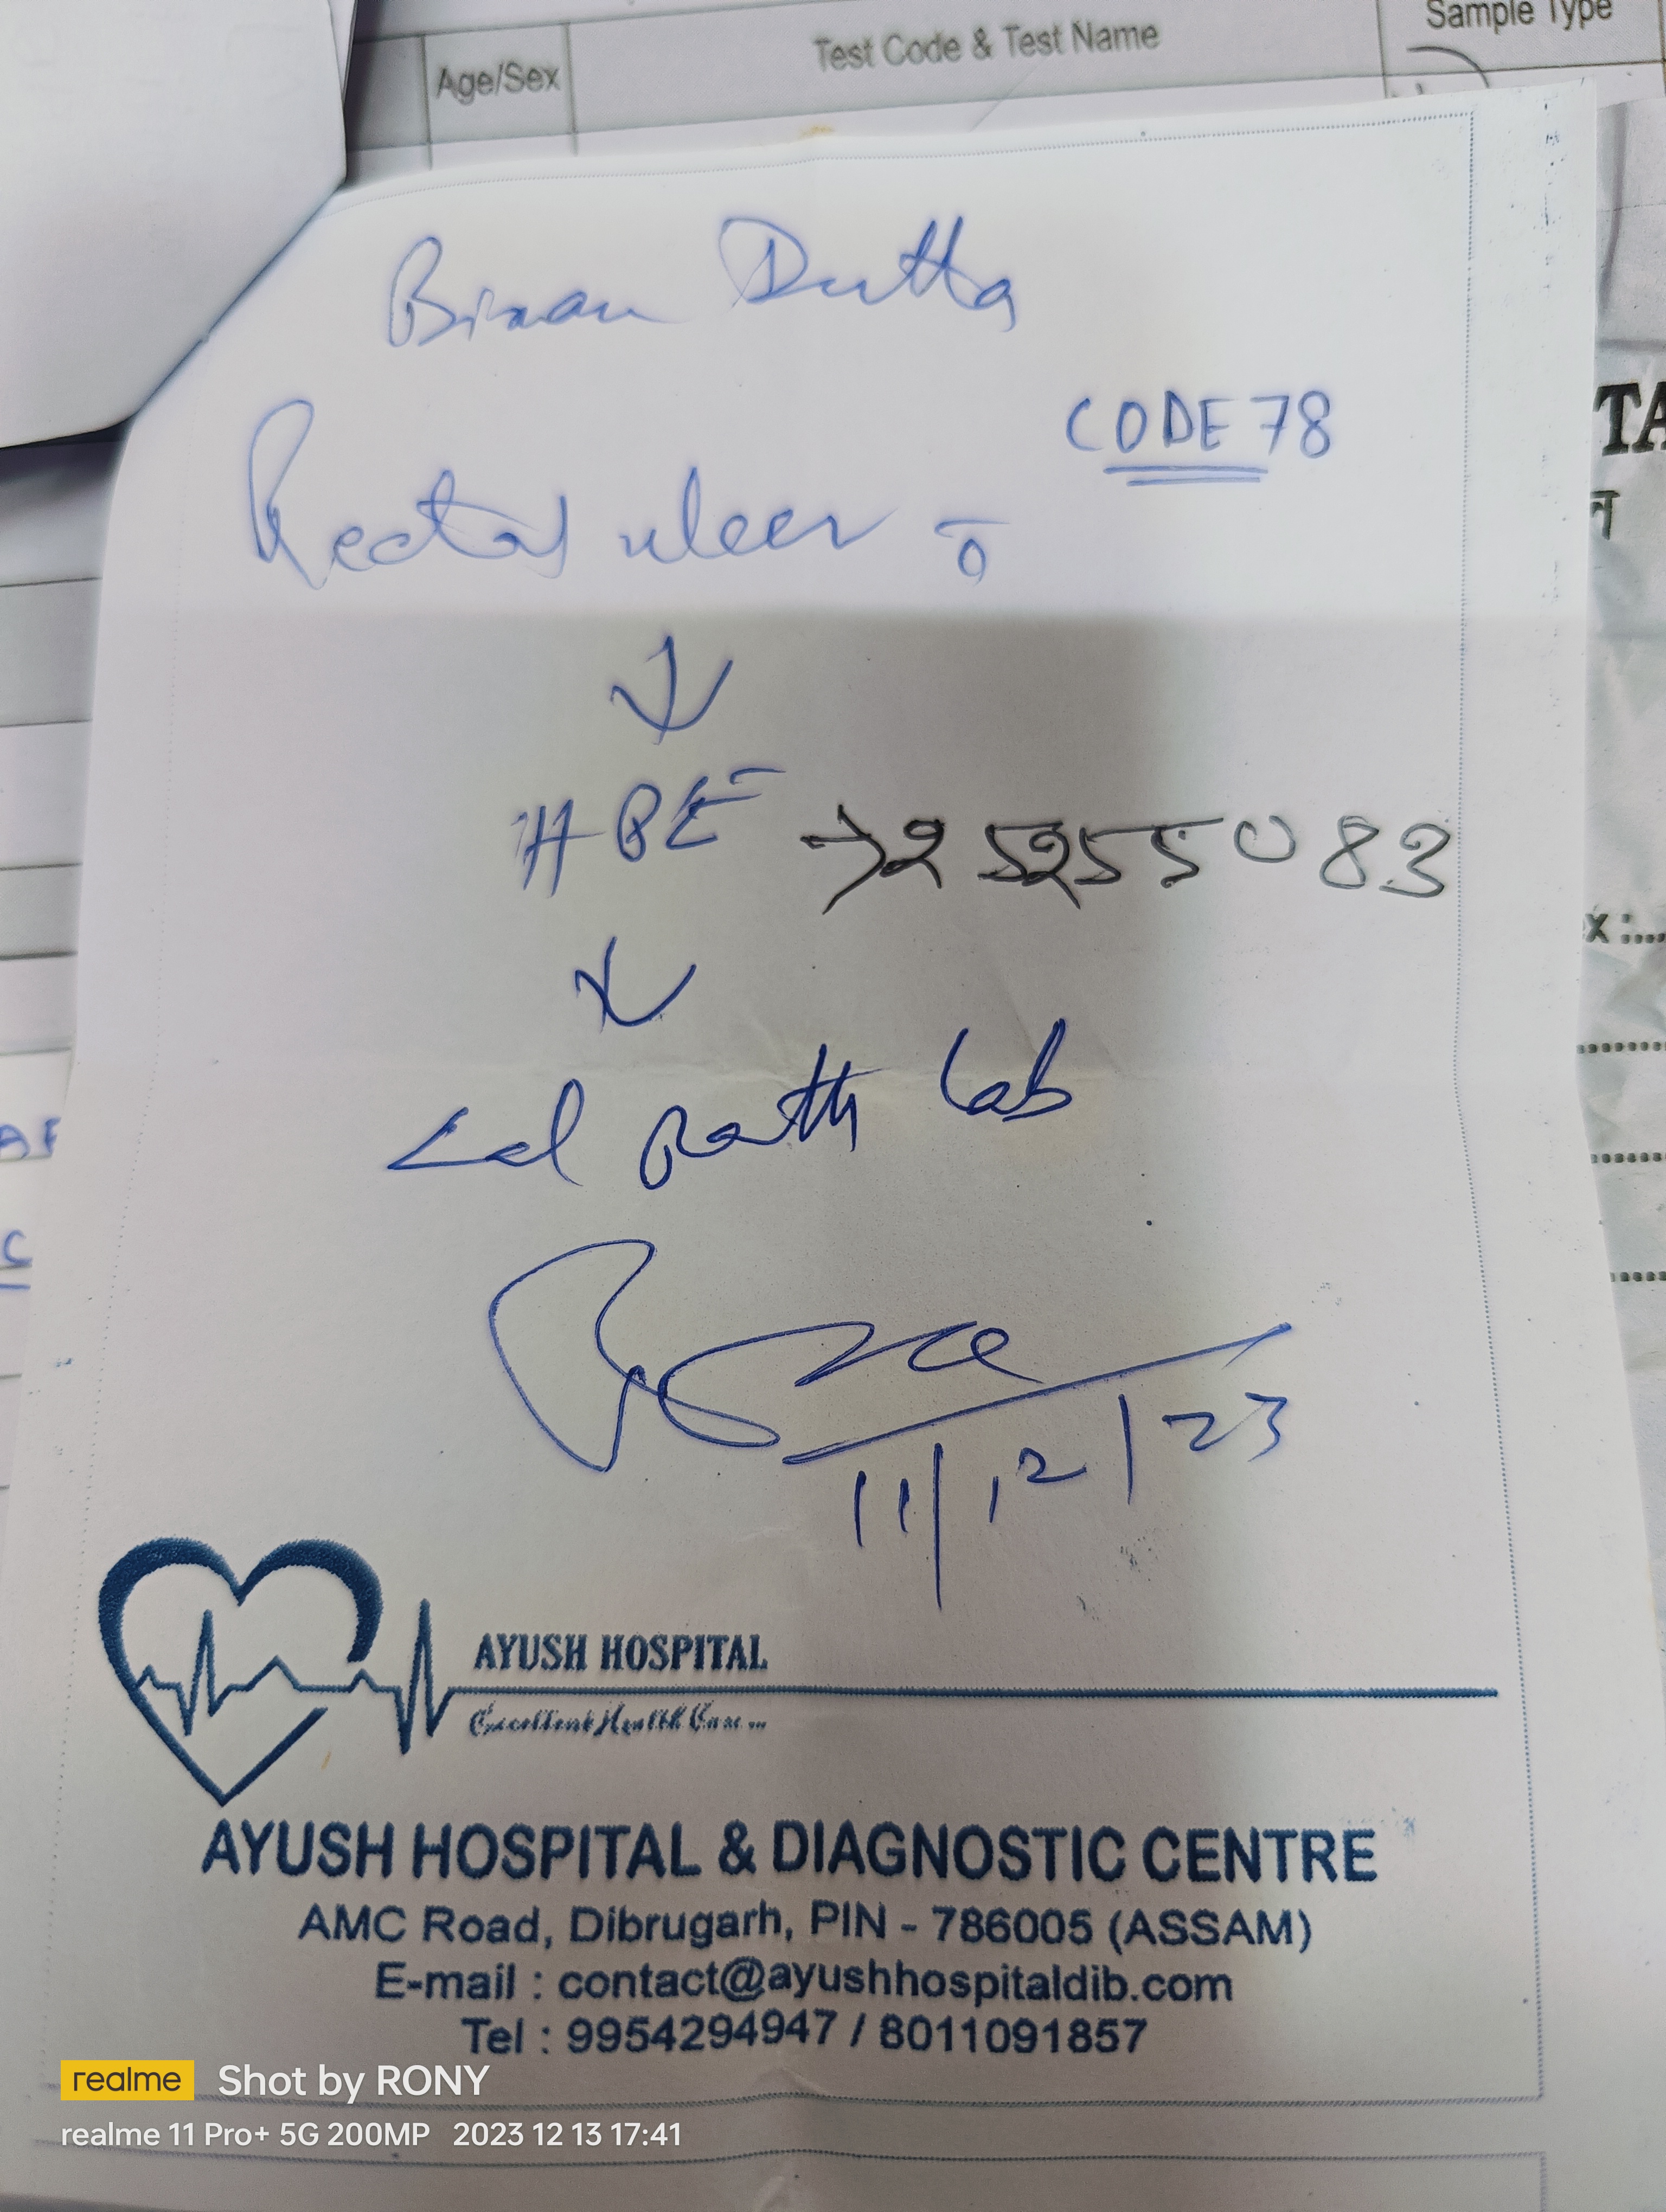 Sample Type
Age/Sex
Test Code & Test Name
Biman Dutta
CODE 78
Rectal ulcer
HPE → 2 5255083
Lal Path Lab
11/12/23
TA
x :....
AYUSH HOSPITAL
Excellent Health Care ...
AYUSH HOSPITAL & DIAGNOSTIC CENTRE
AMC Road, Dibrugarh, PIN - 786005 (ASSAM)
E-mail : contact@ayushhospitaldib.com
Tel : 9954294947 / 8011091857
realme Shot by RONY
realme 11 Pro+ 5G 200MP 2023 12 13 17:41